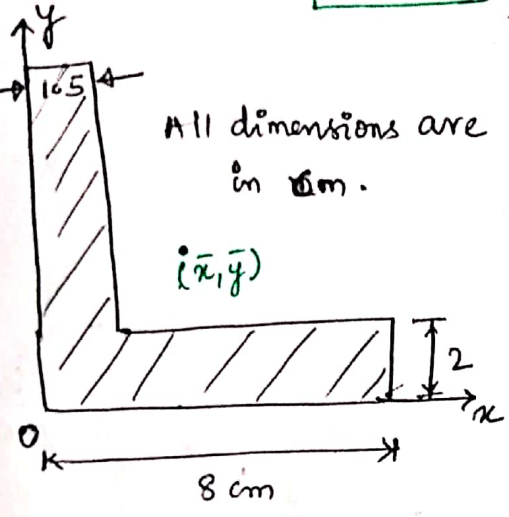 y
1.5
All dimensions are
in cm.
(x̄, ȳ)
2
x
O
8 cm